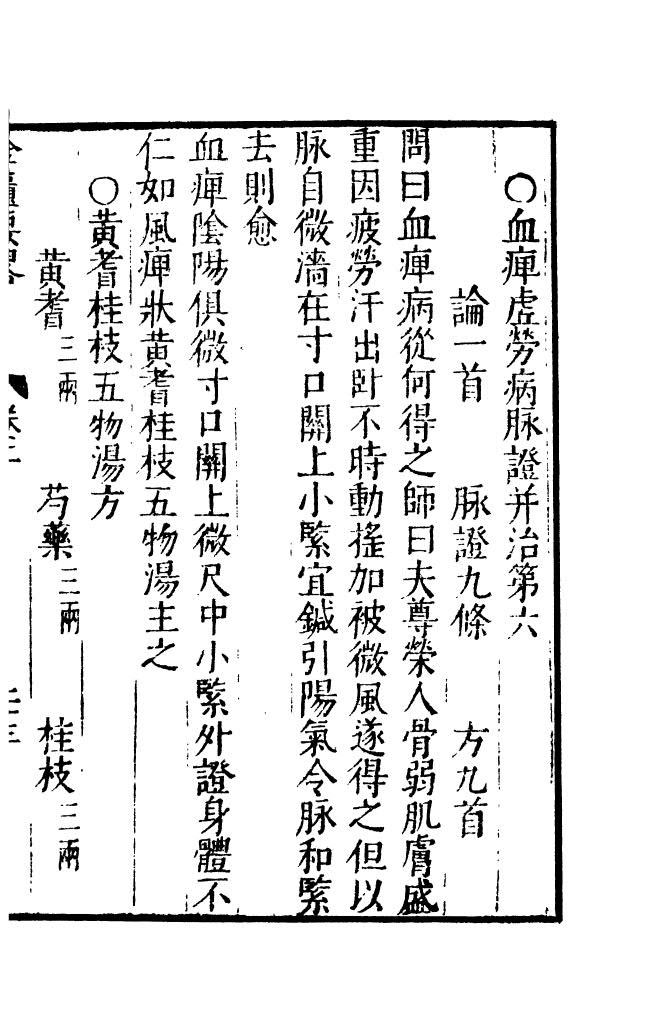 ○血痺虛勞病脉證并治第六
論一首 脉證九條 方九首
問曰血痺病從何得之師曰夫尊榮人骨弱肌膚盛
重因疲勞汗出臥不時動搖加被微風遂得之但以
脉自微濇在寸口關上小緊宜鍼引陽氣令脉和緊
去則愈
血痺陰陽俱微寸口關上微尺中小緊外證身體不
仁如風痺狀黃耆桂枝五物湯主之
○黃耆桂枝五物湯方
黃耆三兩 芍藥三兩 桂枝三兩